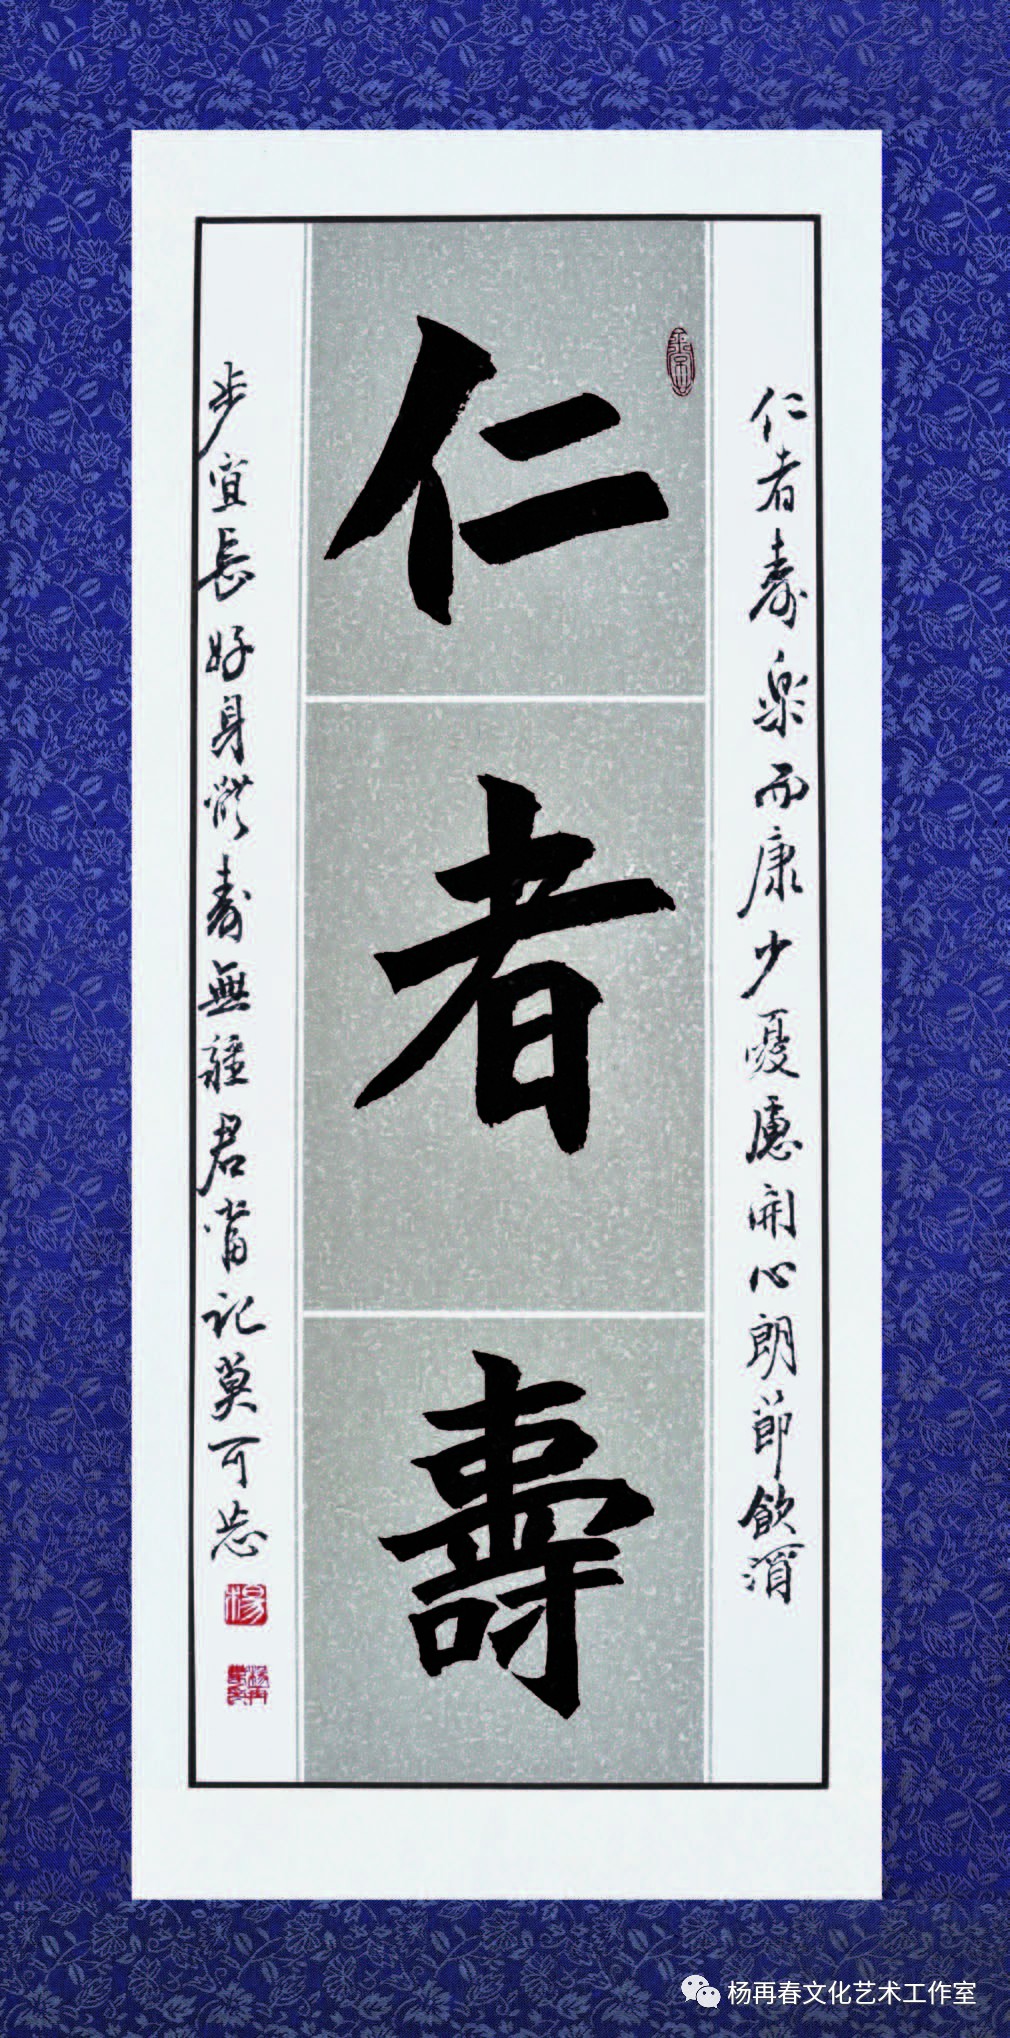 仁者壽
仁者寿樂而康少憂慮開心朗節飲酒
步宜長好身體寿無疆君當記莫可忘
楊
杨再春文化艺术工作室